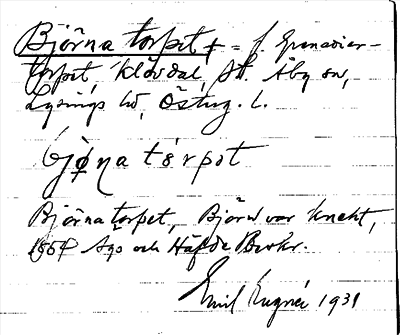 Björnatorpet † = f. Grenadier-
torpet, Klövdal, St. Åby sn,
Lysings hd, Östrg. l.
bjǫ̀na tɵrpɵt
Björnatorpet, Björn var knekt,
1864 Ägo och Häfde Beskr.
Emil Eugnér 1931